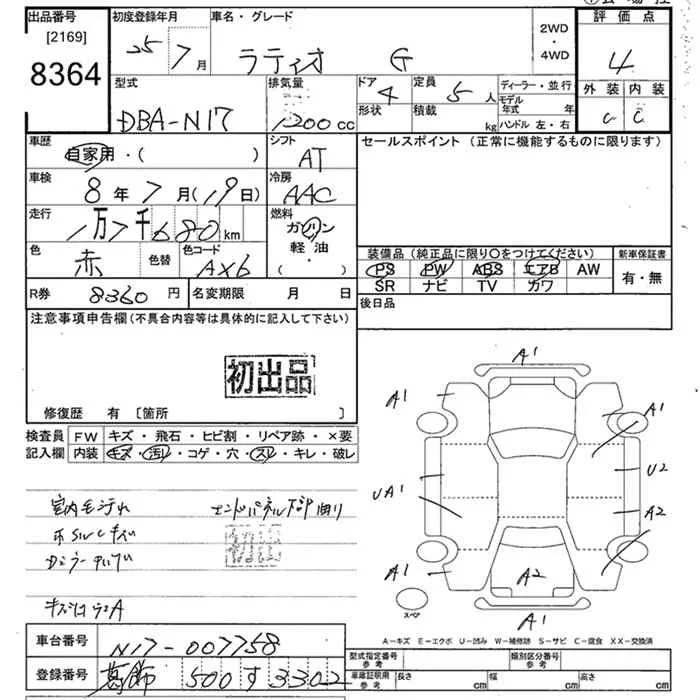 出品番号
[2169]
8364
初度登録年月
25 7 月
車名・グレード
ラティオ G
2WD
・
4WD
評価点
4
外装 内装
C C
型式
DBA-N17
排気量
1200 cc
ドア
4
形状
定員
5 人
積載
kg
ディーラー・並行
モデル
年式 年
ハンドル 左・右
車歴
自家用・( )
シフト
AT
セールスポイント (正常に機能するものに限ります)
車検
8 年 7 月 (19日)
冷房
AAC
走行
1万7千680 km
燃料
ガソリン
軽・油
( ・ )
色
赤
色替
色コード
AX6
装備品 (純正品に限り○をつけてください)
PS PW ABS エアB AW
SR ナビ TV カワ
新車保証書
有・無
R券 8360 円
名変期限 月 日
後日品
注意事項申告欄(不具合内容等は具体的に記入して下さい)
初出品
修復歴 有 〔箇所 〕
検査員
記入欄
FW キズ・飛石・ヒビ割・リペア跡・×要
内装 キズ・汚れ・コゲ・穴・スレ・キレ・破レ
室内毛汚れ
エンドパネル下部曲り
初出品
A1
A1
A1
UA1
U2
A2
A1
A2
A1
A1
スペア
A−キズ E−エクボ U−凹み W−補修跡 S−サビ C−腐食 XX−交換済
車台番号
N17-007758
登録番号
葛飾 500 す 3302
型式指定番号
参考
類別区分番号
参考
車庫証明用
参考
長さ cm
幅 cm
高さ cm